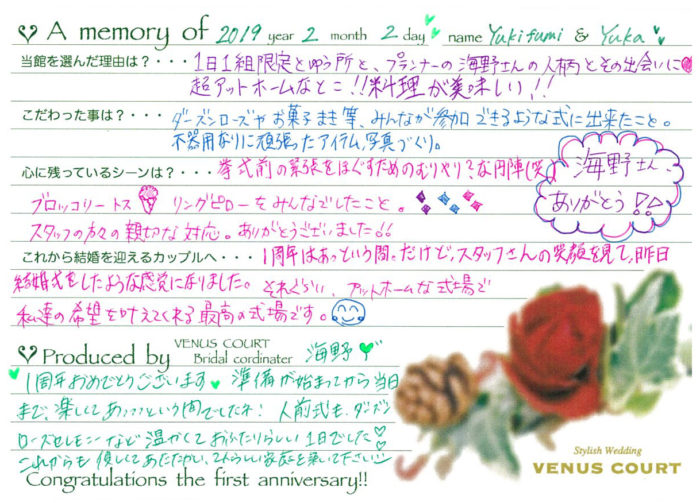 A memory of 2019 year 2 month 2 day name Yukifumi & Yuka
当館を選んだ理由は？・・・1日1組限定とゆう所と、プランナーの海野さんの人柄とその出会いに
超アットホームなとこ!!料理が美味しい!!
こだわった事は？・・・ダーズンローズやお菓子まき等、みんなが参加できるような式に出来たこと。
不器用なりに頑張ったアイテム、写真づくり。
心に残っているシーンは？・・・挙式前の緊張をほぐすためのむりやり？な円陣(笑)
ブロッコリートス リングピローをみんなでしたこと。
スタッフの方々の親切な対応。ありがとうございました!!
海野さん
ありがとう!!
これから結婚を迎えるカップルへ・・・1周年はあっという間。だけど、スタッフさんの笑顔を見て、昨日
結婚式をしたような感覚になりました。それくらい、アットホームな式場で
私達の希望を叶えてくれる最高の式場です。
Produced by VENUS COURT Bridal cordinater 海野
1周年おめでとうございます 準備が始まってから当日
まで、楽しくてあっっっという間でしたね! 人前式も、ダーズン
ローズセレモニーなど温かくておふたりらしい1日でした
これからも優しくてあたたかい、2人らしい家庭を築いて下さい
Congratulations the first anniversary!!
Stylish Wedding
VENUS COURT